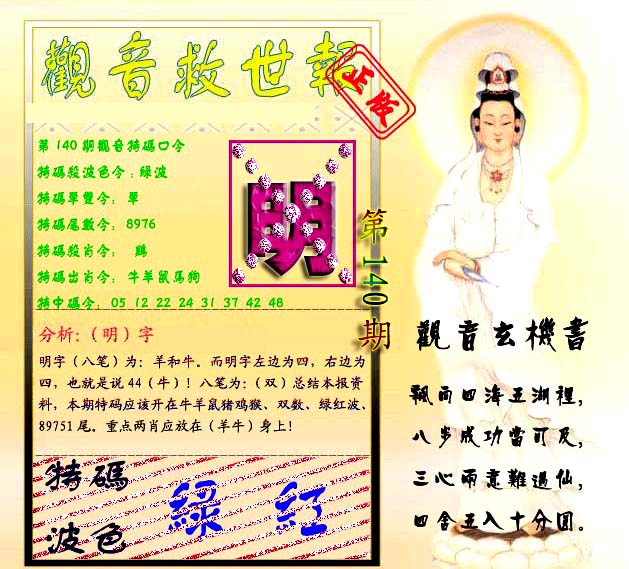 觀音救世報
正版
第140期觀音特碼口令
特碼殺波色令:綠波
特碼單雙令: 單
特碼尾數令: 8976
特碼殺肖令: 鷄
特碼出肖令: 牛羊鼠馬狗
特中碼令: 05 12 22 24 31 37 42 48
明
第140期
分析:（明）字
明字（八笔）为：羊和牛。而明字左边为四，右边为
四，也就是说44（牛）！八笔为：（双）总结本报资
料，本期特码应该开在牛羊鼠猪鸡猴、双数、绿红波、
89751尾。重点两肖应放在（羊牛）身上！
特碼
波色
綠 紅
觀音玄機書
飄雨四海五湖裡，
八步成功當可及，
三心兩意難過仙，
四舍五入十分圓。